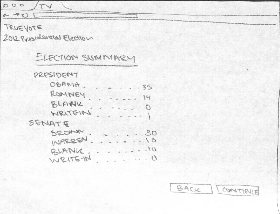 TRUEVOTE
2012 Presidential Election
ELECTION SUMMARY
PRESIDENT
OBAMA 35
ROMNEY 14
BLANK 0
WRITEIN 1
SENATE
BROWN 30
WARREN
BLANK
WRITEIN 0
BACK CONTINUE